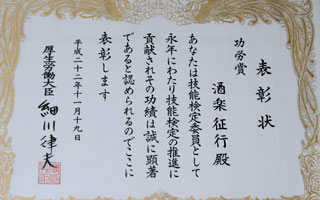 表彰状
功労賞
酒楽征行殿
あなたは技能検定委員として
永年にわたり技能検定の推進に
貢献されその功績は誠に顕著
であると認められるのでここに
表彰します
平成二十二年十一月十九日
厚生労働大臣 細川律夫